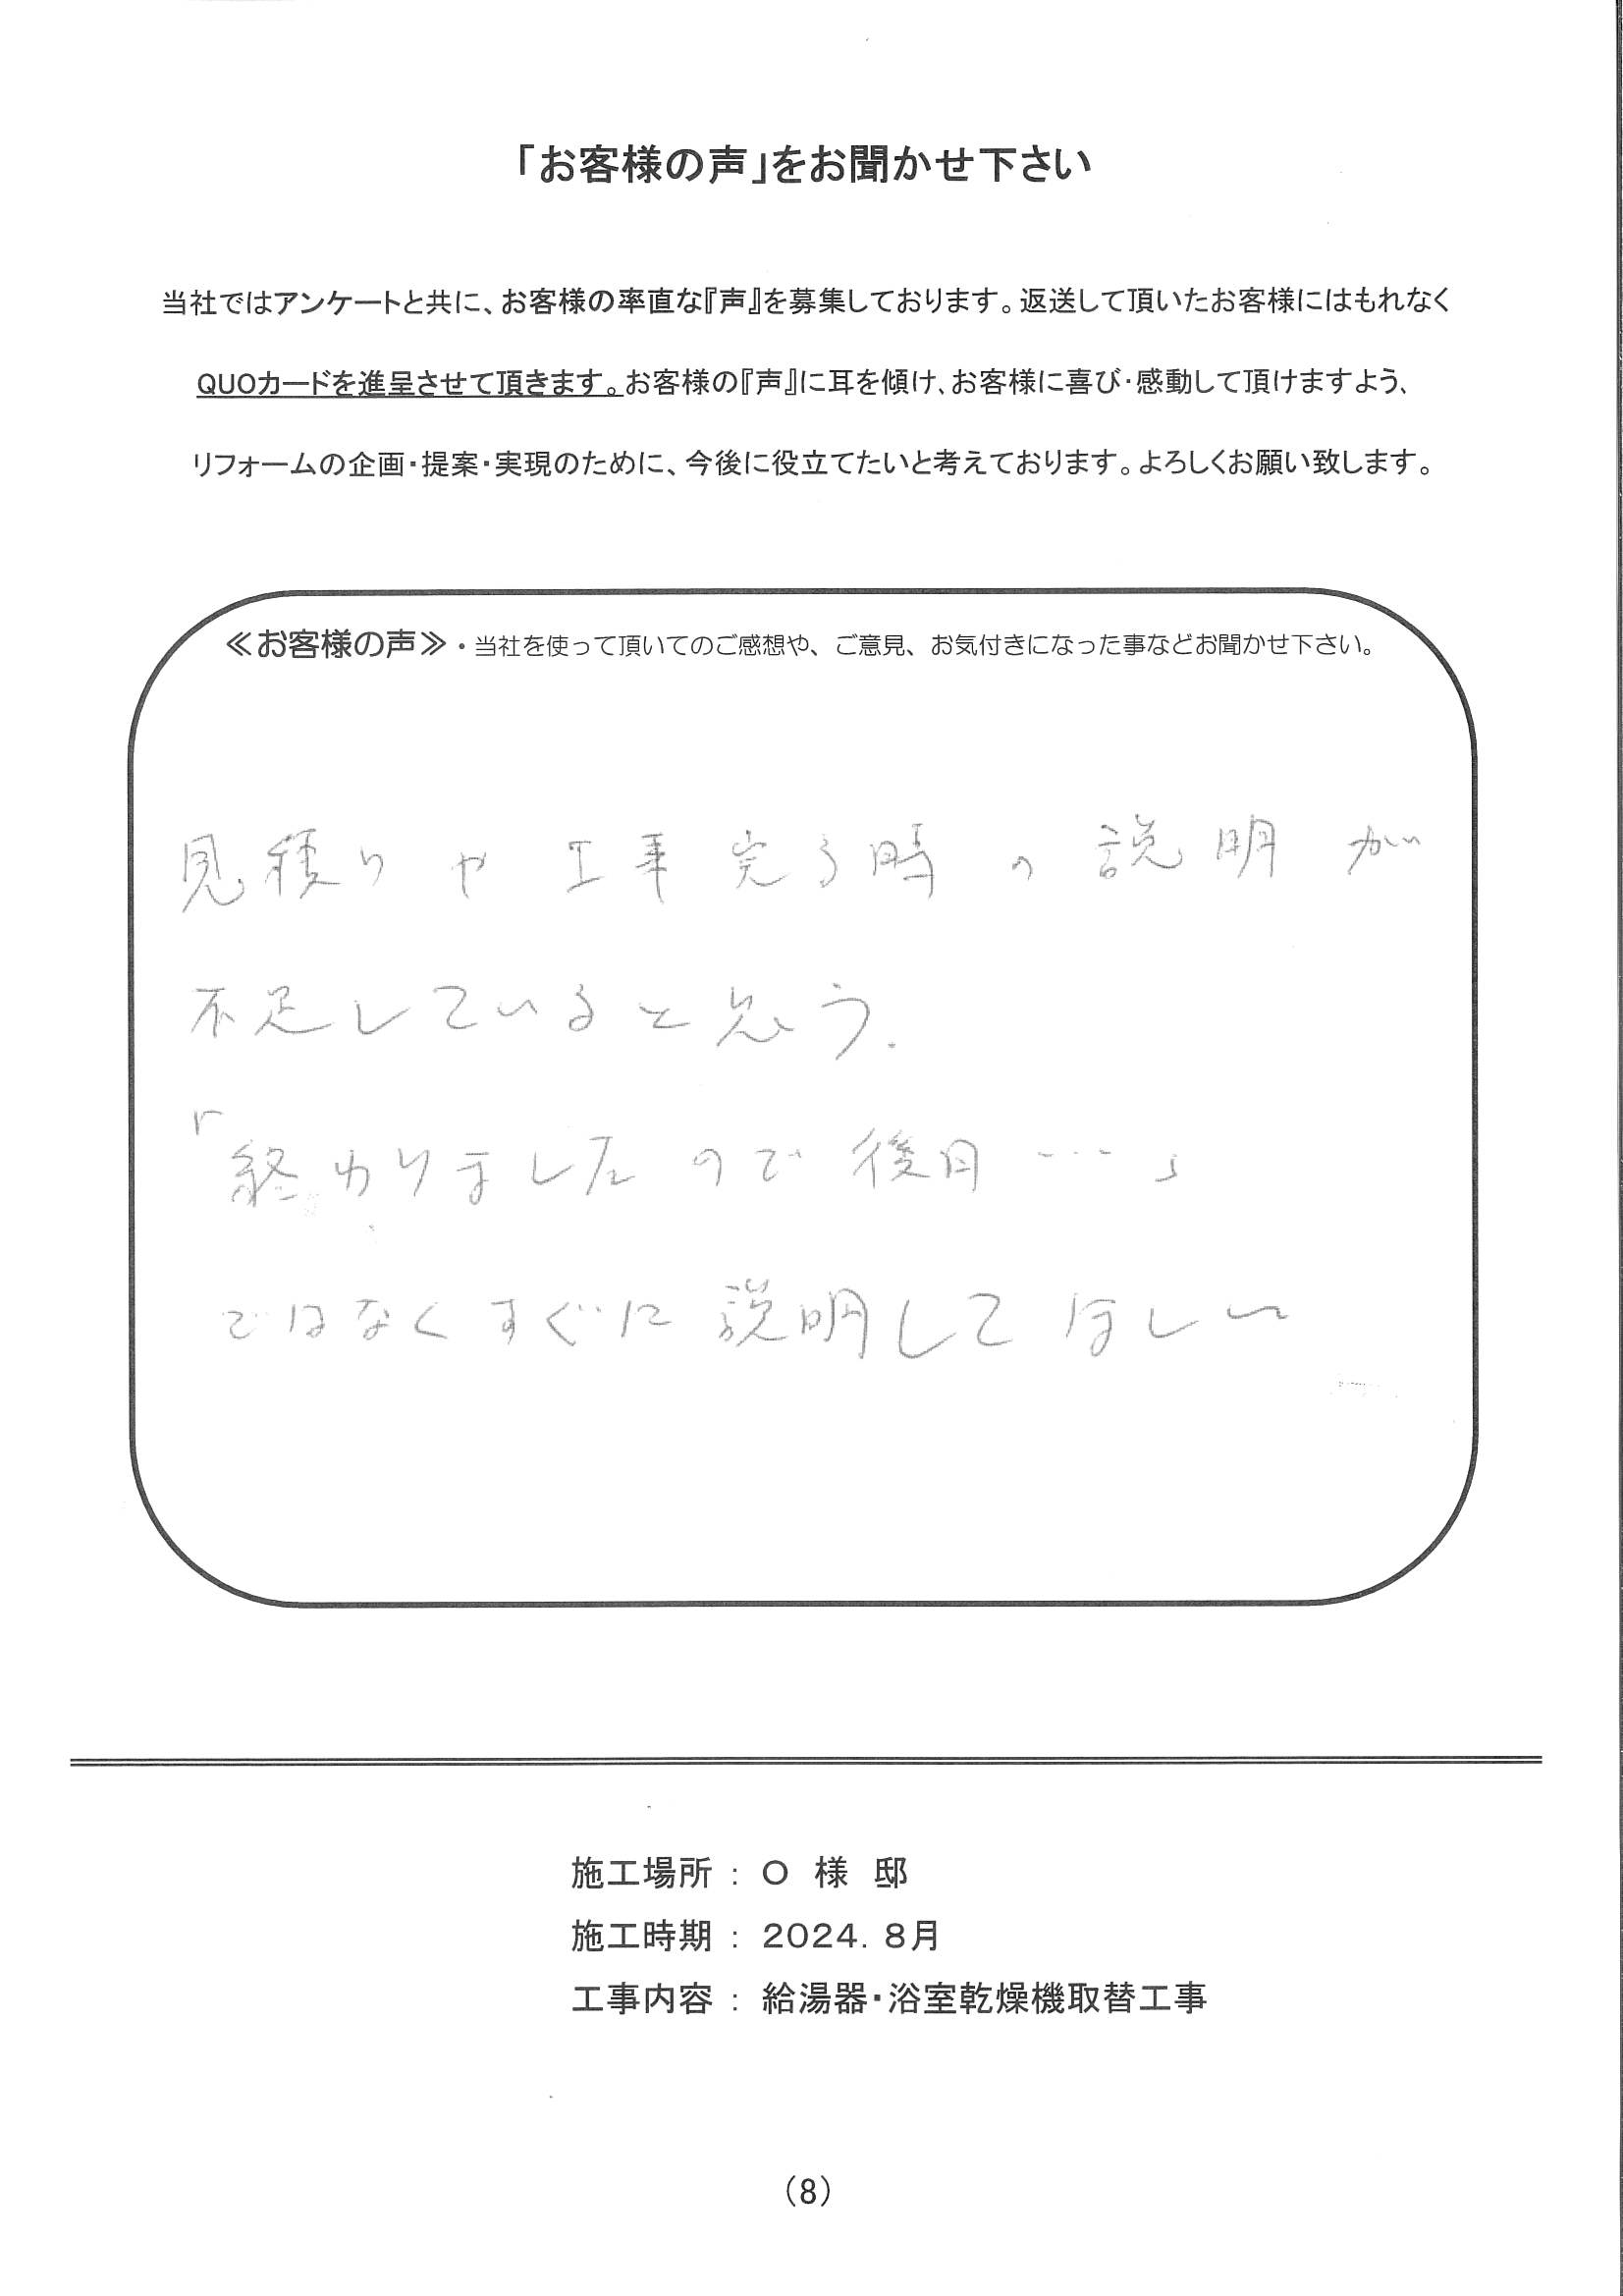 「お客様の声」をお聞かせ下さい
当社ではアンケートと共に、お客様の率直な『声』を募集しております。返送して頂いたお客様にはもれなく
QUOカードを進呈させて頂きます。お客様の『声』に耳を傾け、お客様に喜び・感動して頂けますよう、
リフォームの企画・提案・実現のために、今後に役立てたいと考えております。よろしくお願い致します。
≪お客様の声≫・当社を使って頂いてのご感想や、ご意見、お気付きになった事などお聞かせ下さい。
見積りや工事完了時の説明が
不足していると思う.
「終わりましたので後日…」
ではなくすぐに説明してほしい
施工場所 : O 様 邸
施工時期 : 2024. 8月
工事内容 : 給湯器・浴室乾燥機取替工事
(8)